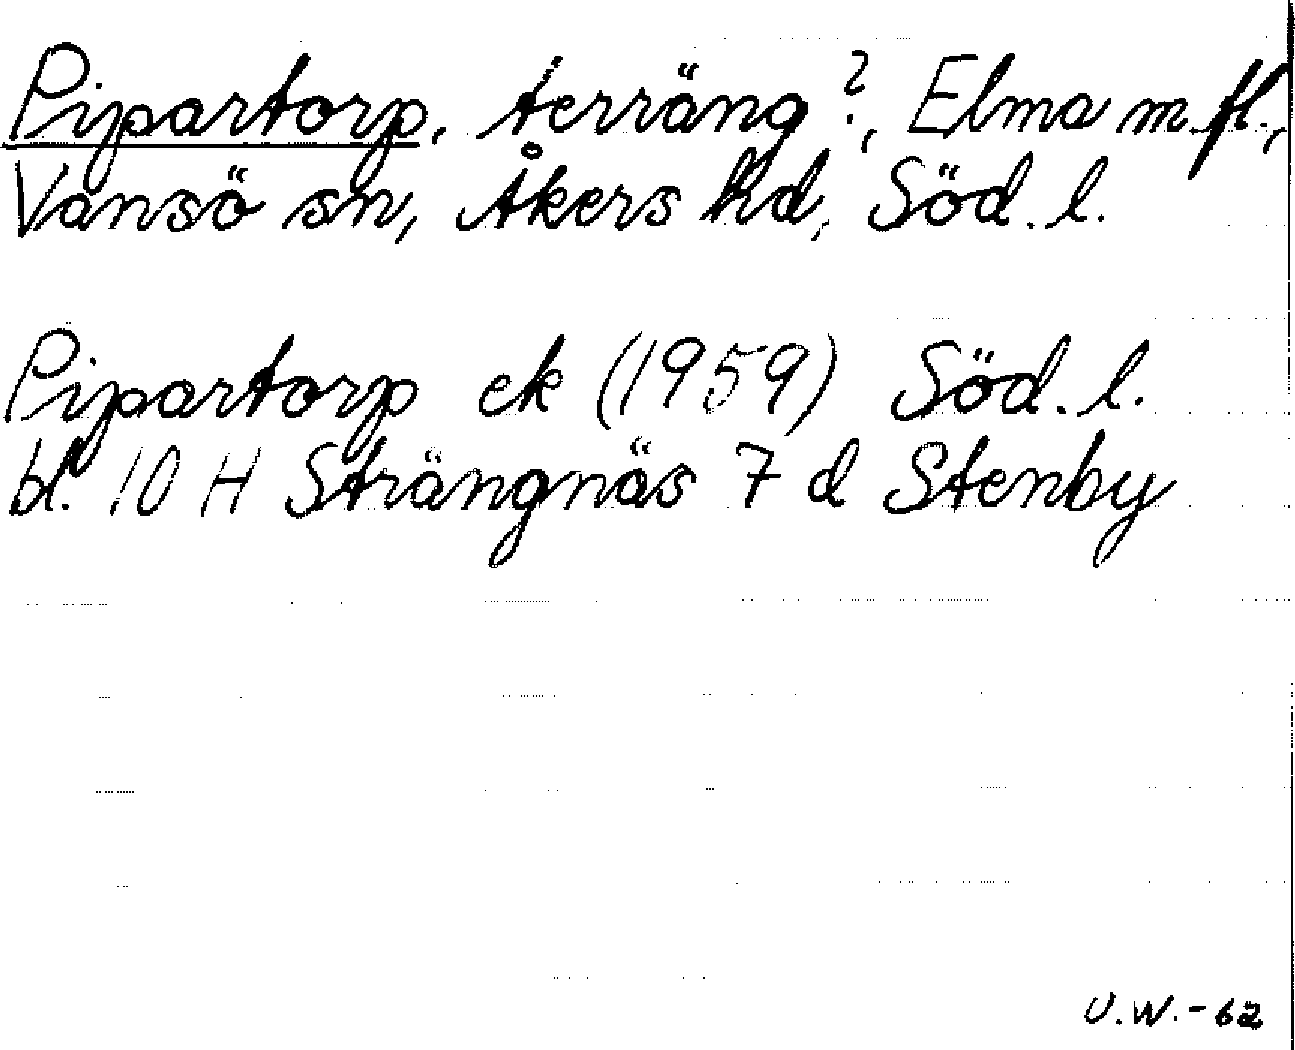 Pipartorp, terräng?, Elma m.fl.,
Vansö sn, Åkers hd, Söd. l.
Pipartorp ek (1959) Söd. l.
bl. 10 H Strängnäs 7 d Stenby
U.W.-62